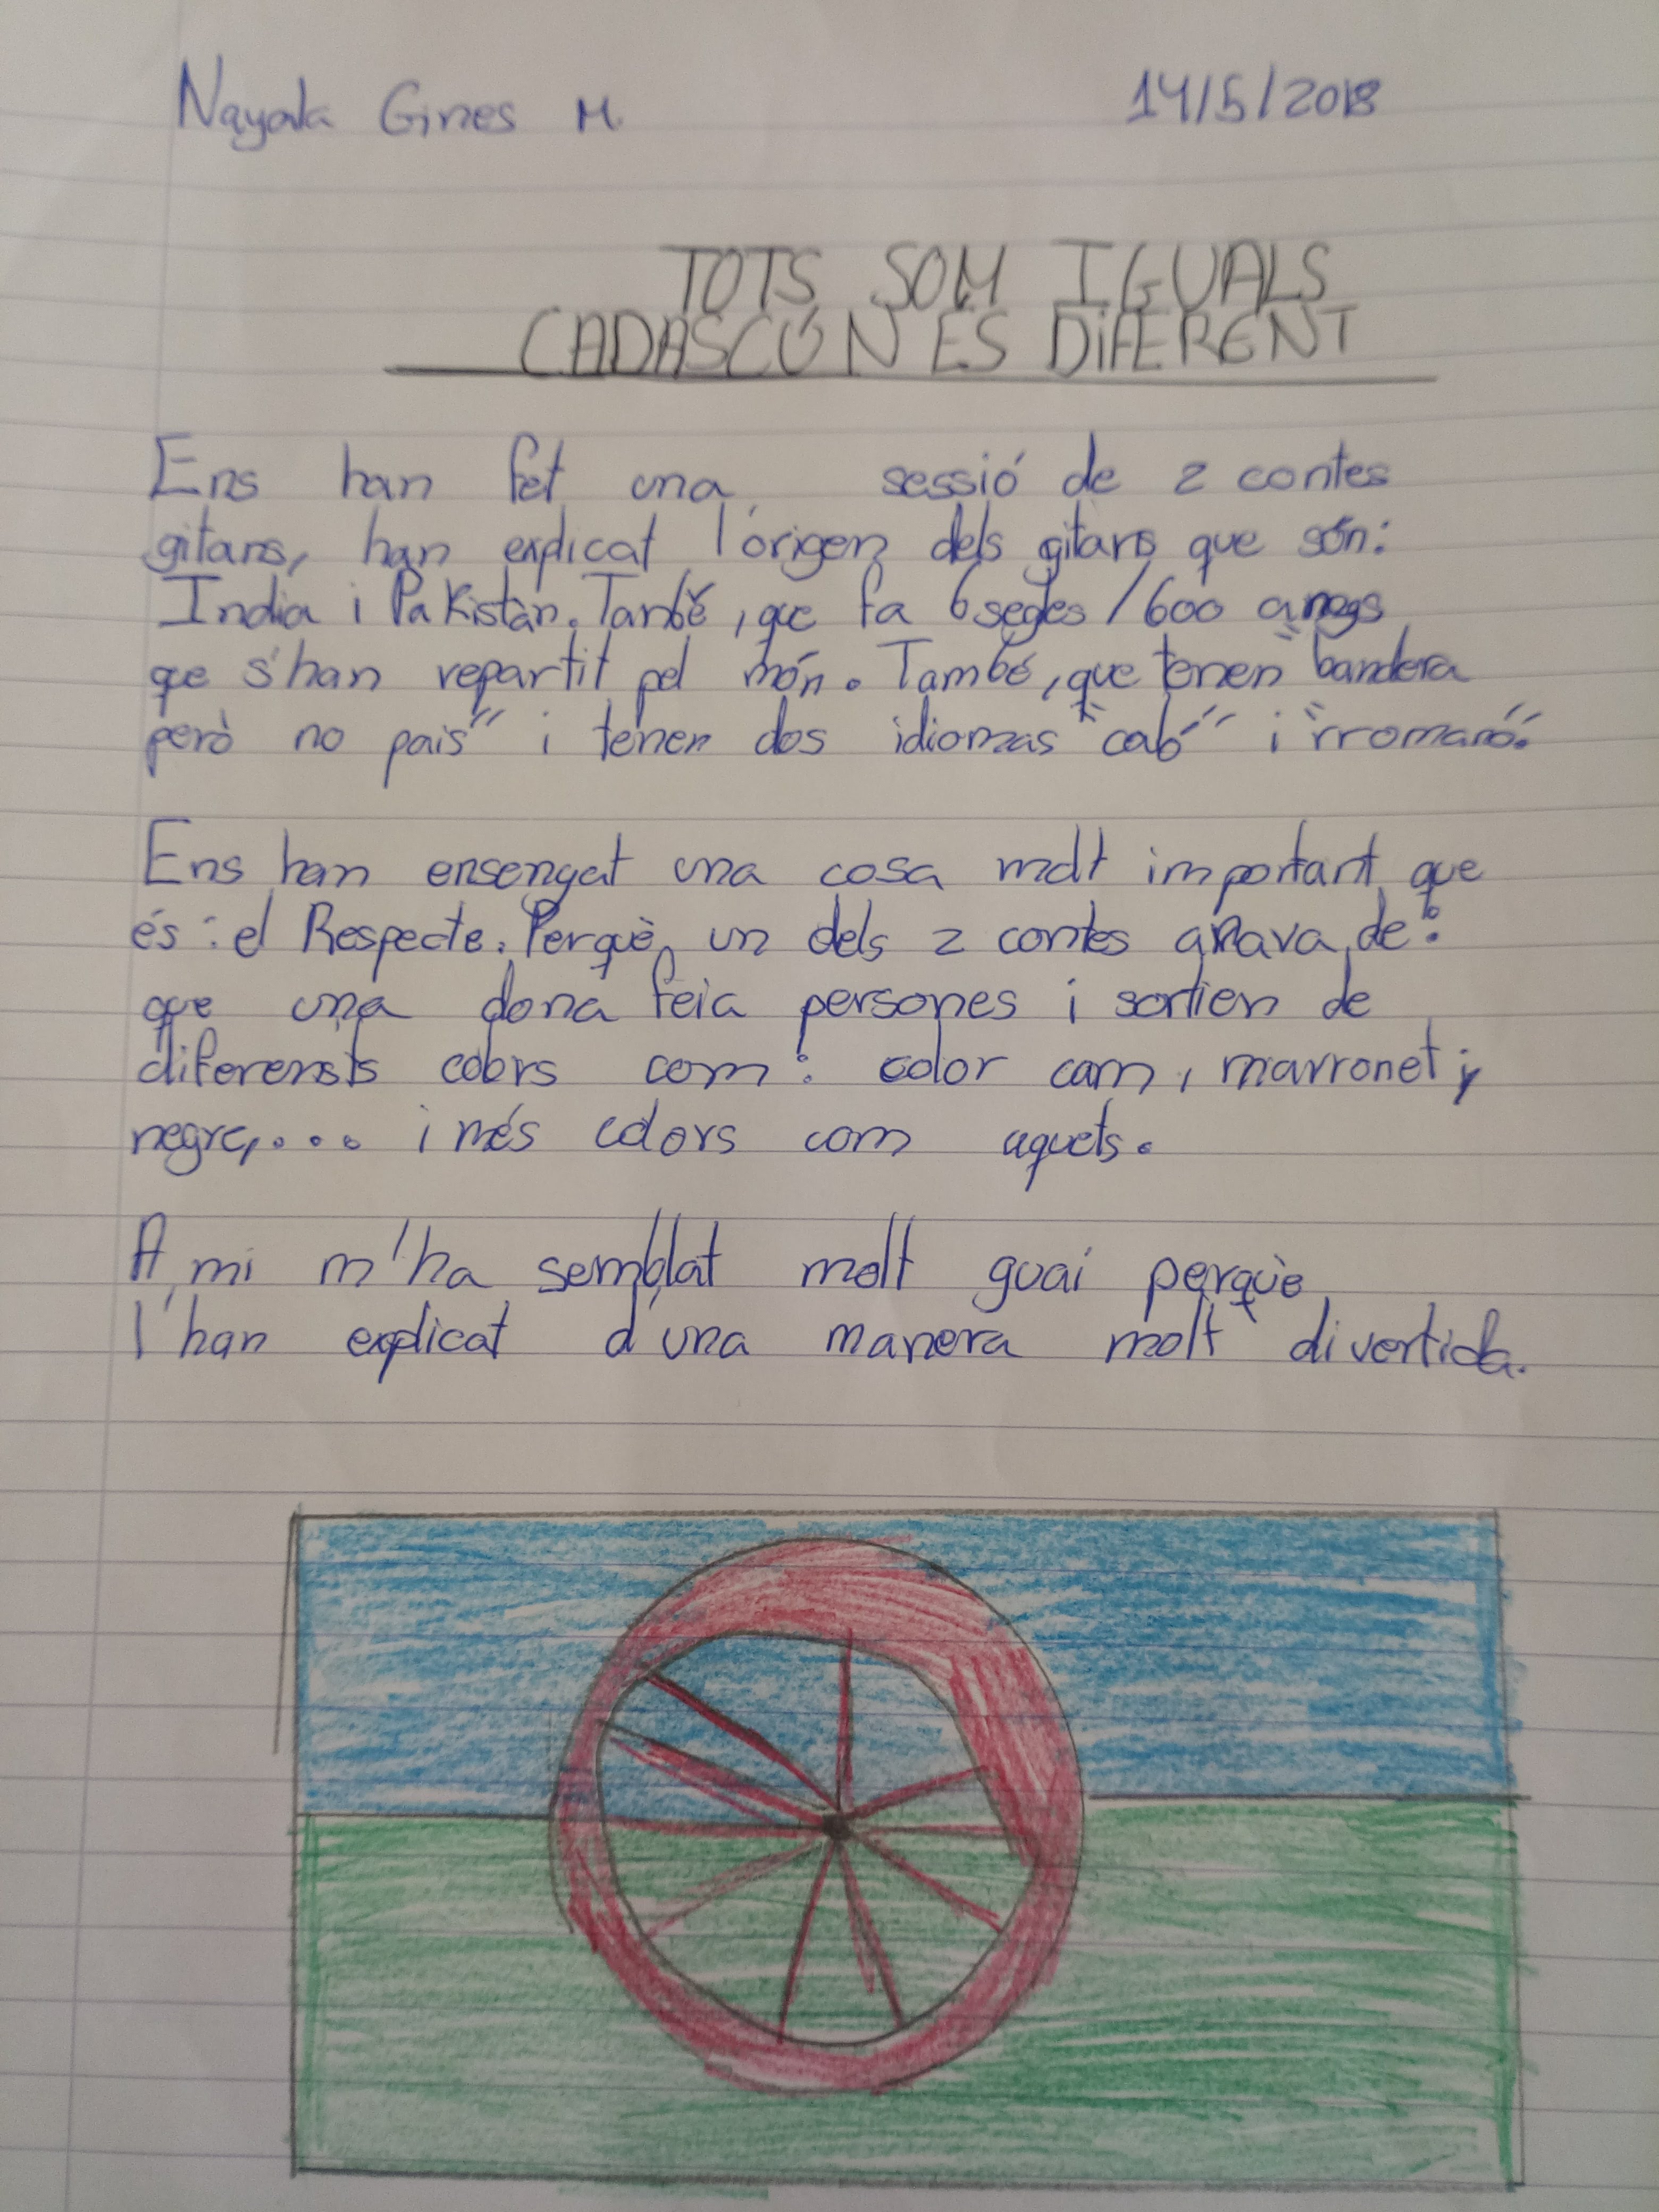 Nayala Gines M. 14/5/2018
TOTS SOM IGUALS
CADASCÚN ES DiFERENT
Ens han fet una sessió de 2 contes
gitans, han explicat l'origen dels gitans que són:
India i Pakistàn. També, que fa 6 segles / 600 anys
que s'han repartit pel món. També, que tenen "bandera
però no pais" i tenen dos idiomas "caló" i "rromanó".
Ens han ensenyat una cosa molt important que
és: el Respecte. Perquè, un dels 2 contes anava de:
que una dona feia persones i sortien de
diferensts colors com: color carn, marronet i
negre,.... i més colors com aquets.
A mi m'ha semblat molt guai perquè
l'han explicat d'una manera molt divertida.